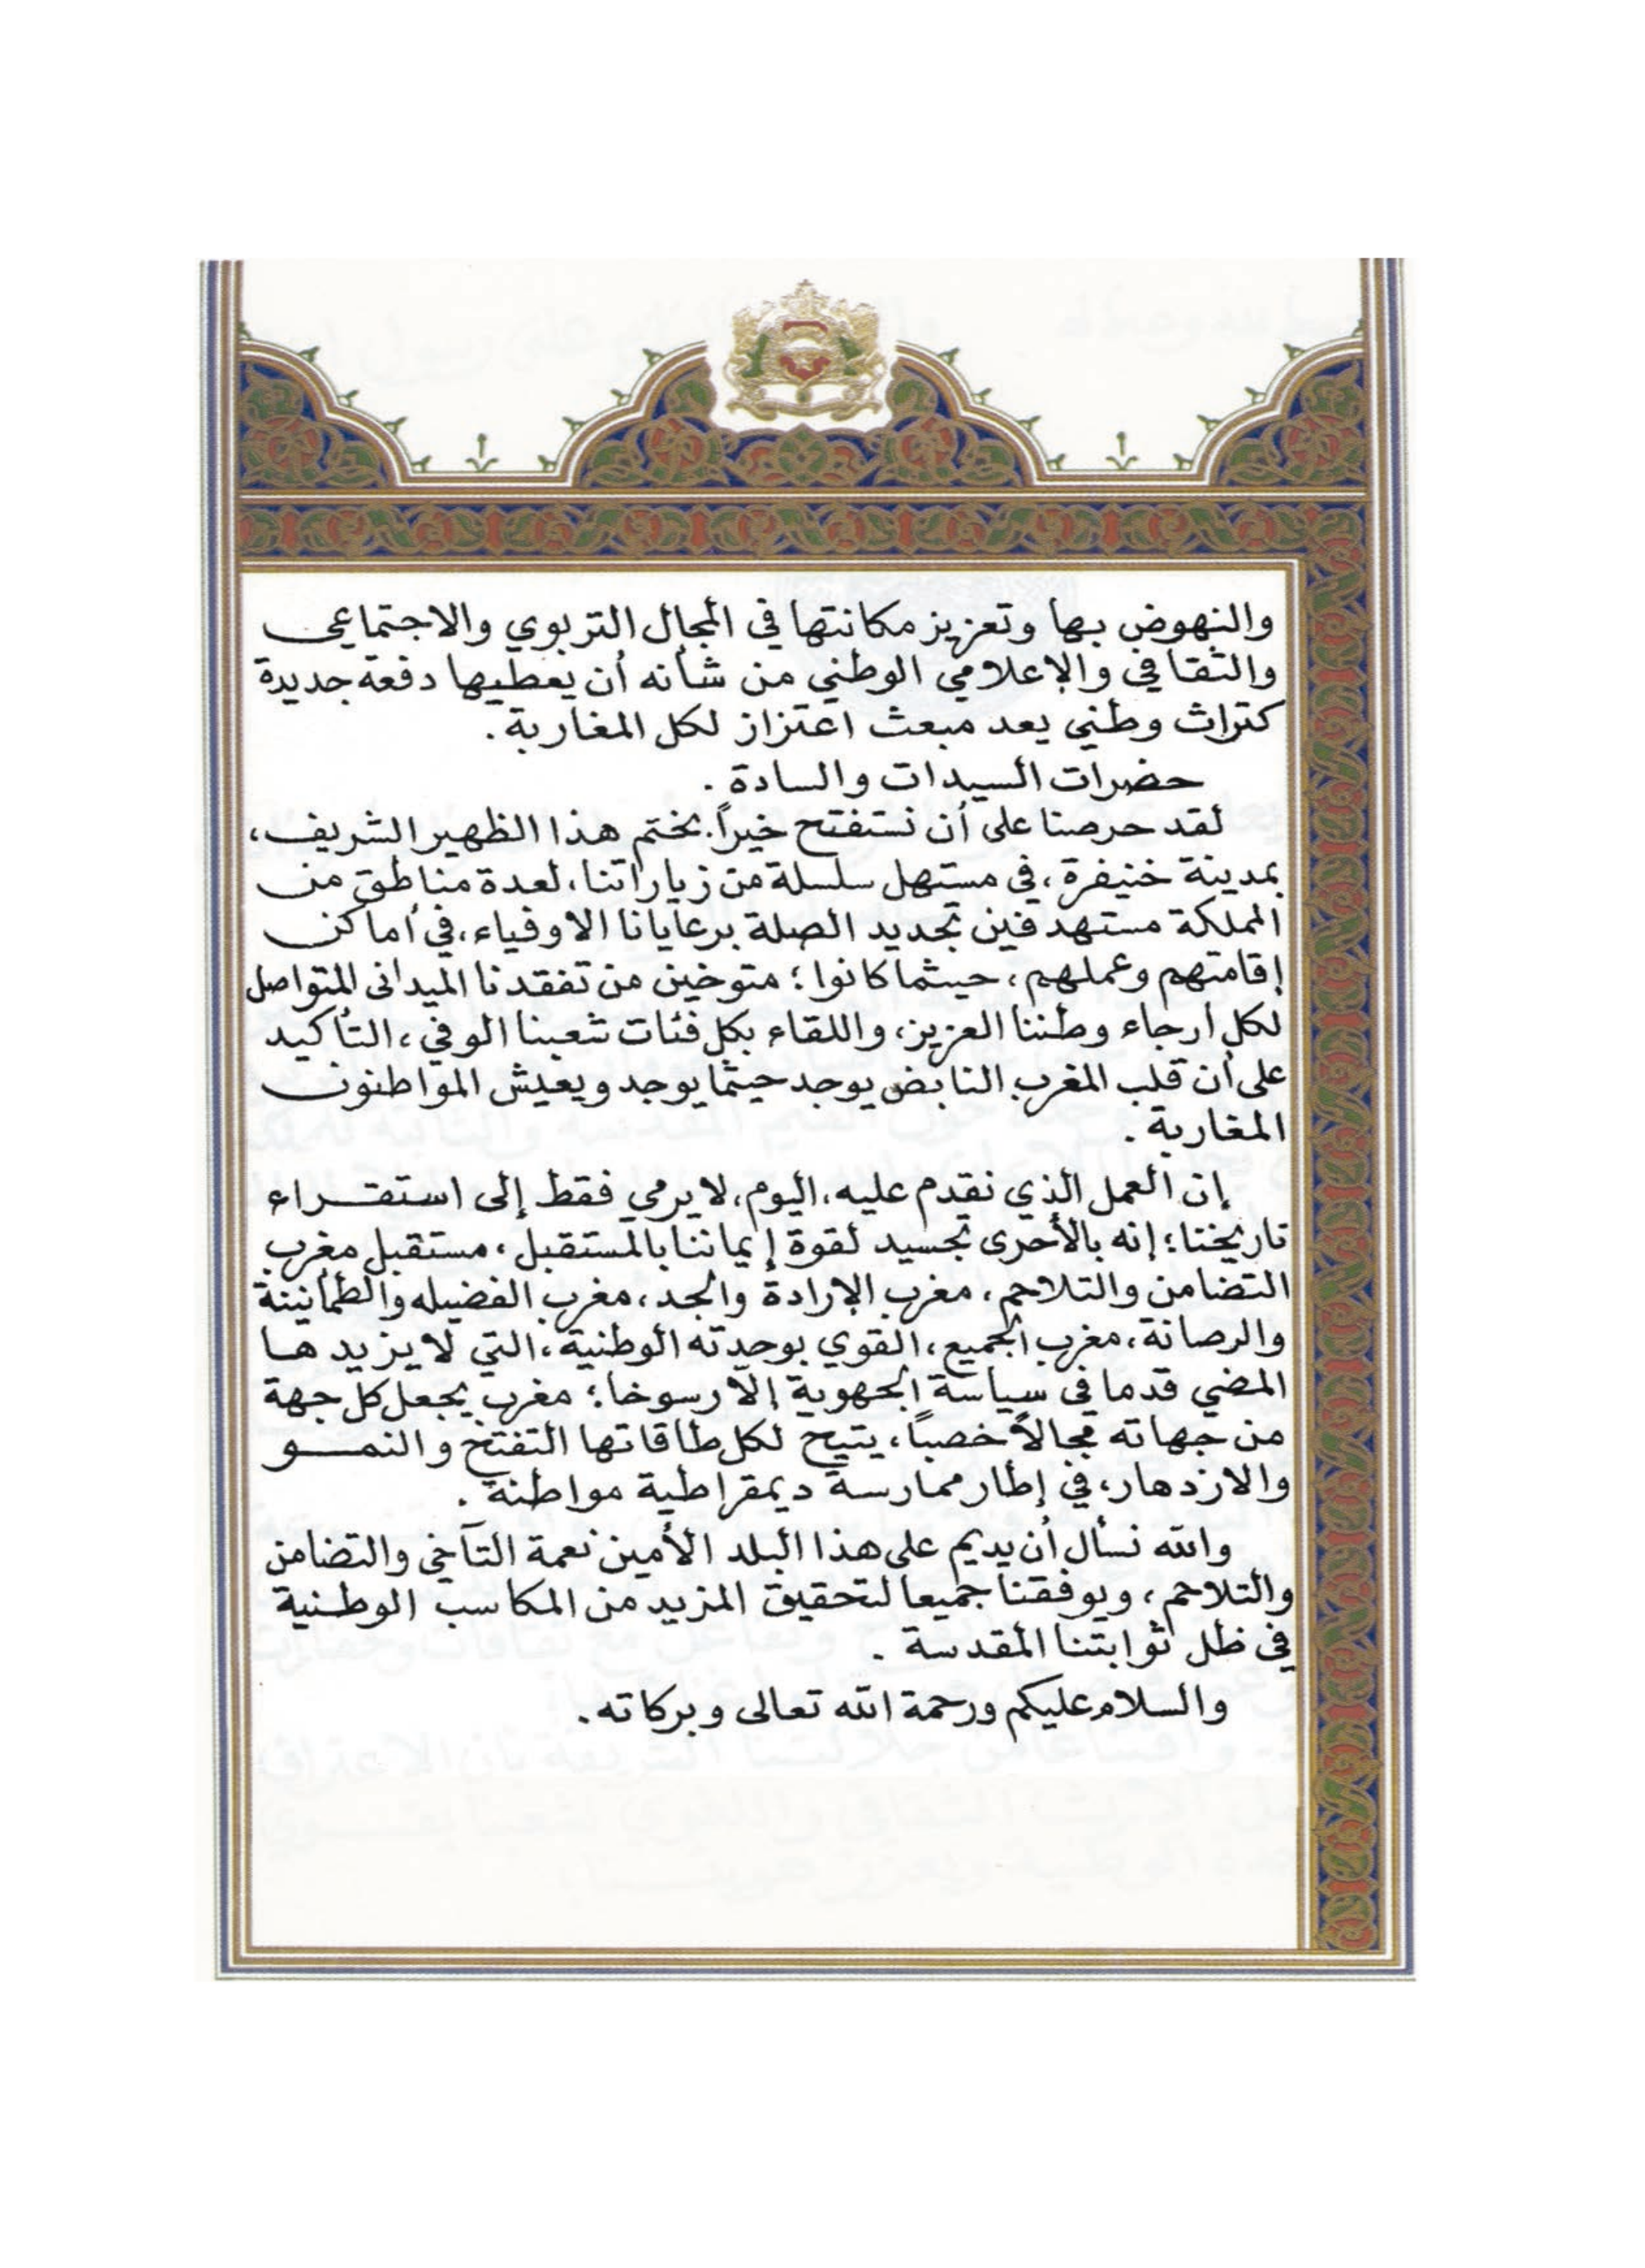 والنهوض بها وتعزيز مكانتها في المجال التربوي والاجتماعي
والثقافي والإعلامي الوطني من شأنه أن يعطيها دفعة جديدة
كتراث وطني يعد مبعث اعتزاز لكل المغاربة .
حضرات السيدات والسادة .
لقد حرصنا على أن نستفتح خيراً، بختم هذا الظهير الشريف،
بمدينة خنيفرة، في مستهل سلسلة من زياراتنا، لعدة مناطق من
المملكة مستهدفين تجديد الصلة برعايانا الاوفياء، في أماكن
إقامتهم وعملهم، حيثما كانوا؛ متوخين من تفقدنا الميداني المتواصل
لكل أرجاء وطننا العزيز، واللقاء بكل فئات شعبنا الوفي، التأكيد
على أن قلب المغرب النابض يوجد حيثما يوجد ويعيش المواطنون
المغاربة .
إن العمل الذي نقدم عليه، اليوم، لا يرمي فقط إلى استقراء
تاريخنا؛ إنه بالأحرى تجسيد لقوة إيماننا بالمستقبل، مستقبل مغرب
التضامن والتلاحم، مغرب الإرادة والجد، مغرب الفضيله والطمأنينة
والرصانة، مغرب الجميع، القوي بوحدته الوطنية، التي لا يزيدها
المضي قدما في سياسة الجهوية إلا رسوخا؛ مغرب يجعل كل جهة
من جهاته مجالاً خصباً، يتيح لكل طاقاتها التفتح والنمو
والازدهار، في إطار ممارسة ديمقراطية مواطنة .
والله نسأل أن يديم على هذا البلد الأمين نعمة التآخي والتضامن
والتلاحم، ويوفقنا جميعا لتحقيق المزيد من المكاسب الوطنية
في ظل ثوابتنا المقدسة .
والسلام عليكم ورحمة الله تعالى وبركاته .